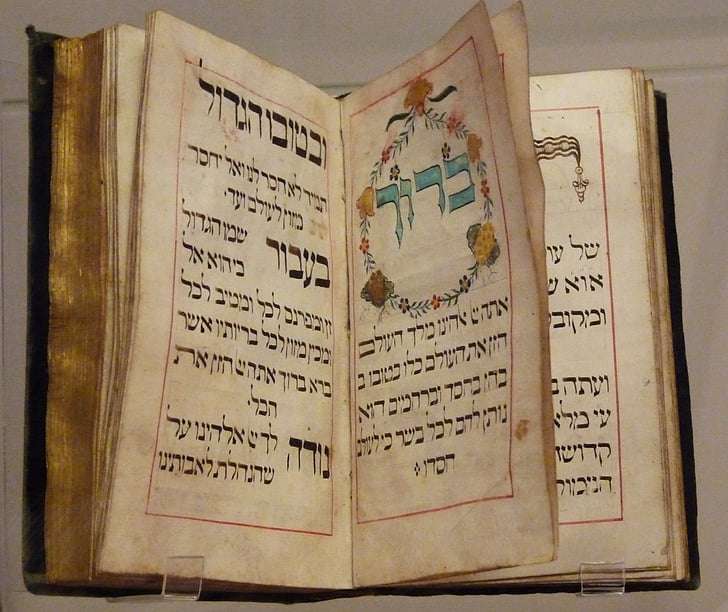 של עו
ועתה ב
ברוך
אתה יי אלהינו מלך העולם
הזן את העולם כלו בטובו ב
בחן בחסד וברחמים הוא
נותן לחם לכל בשר כי לעולם
חסדו:
ובטובו הגדול
תמיד לא חסר לנו ואל יחסר
מזון לעולם ועד.
בעבור שמו הגדול
כי הוא אל
זן ומפרנס לכל ומטיב לכל
ומכין מזון לכל בריותיו אשר
ברא ברוך אתה יי הזן את
הכל.
נודה לך יי אלהינו על
שהנחלת לאבותינו